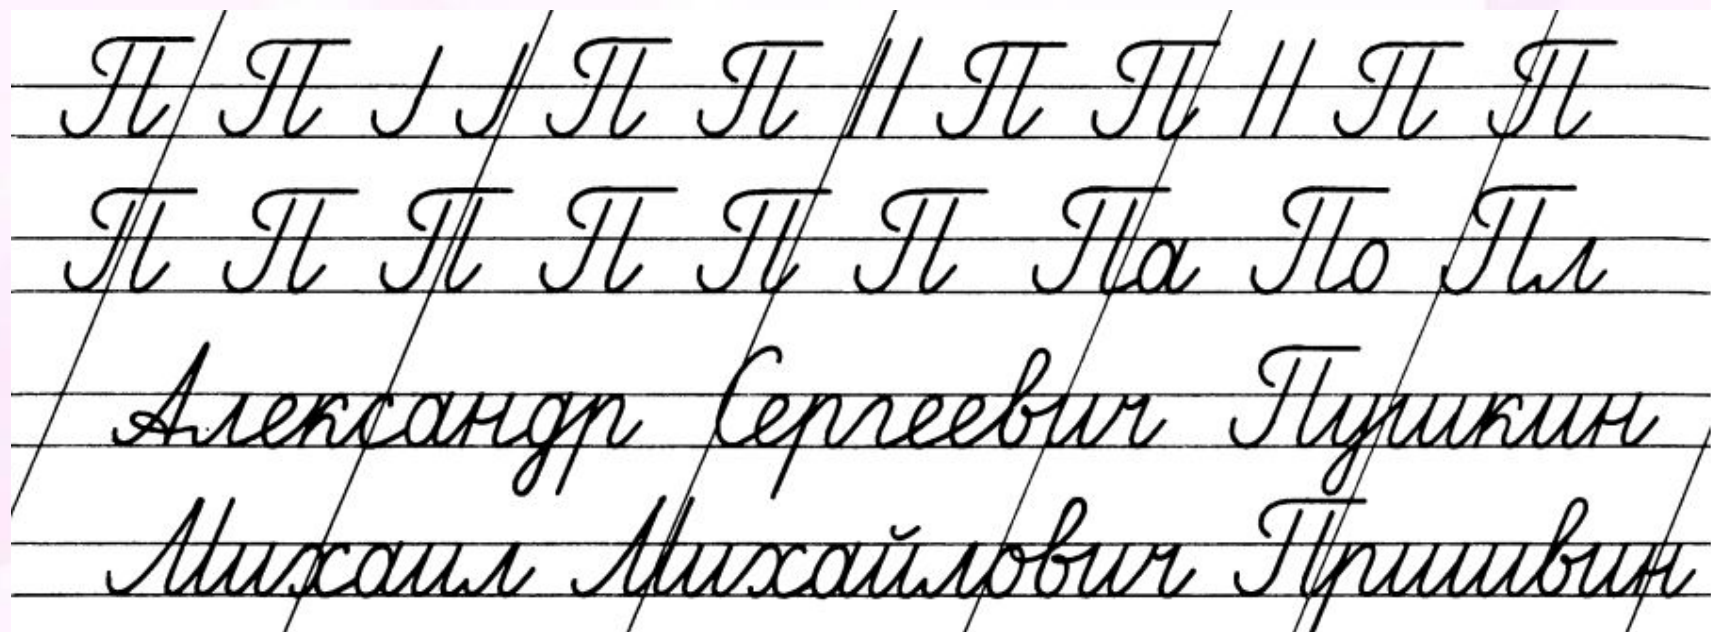 П П П П П П П П
П П П П П П Па По Пл
Александр Сергеевич Пушкин
Михаил Михайлович Пришвин